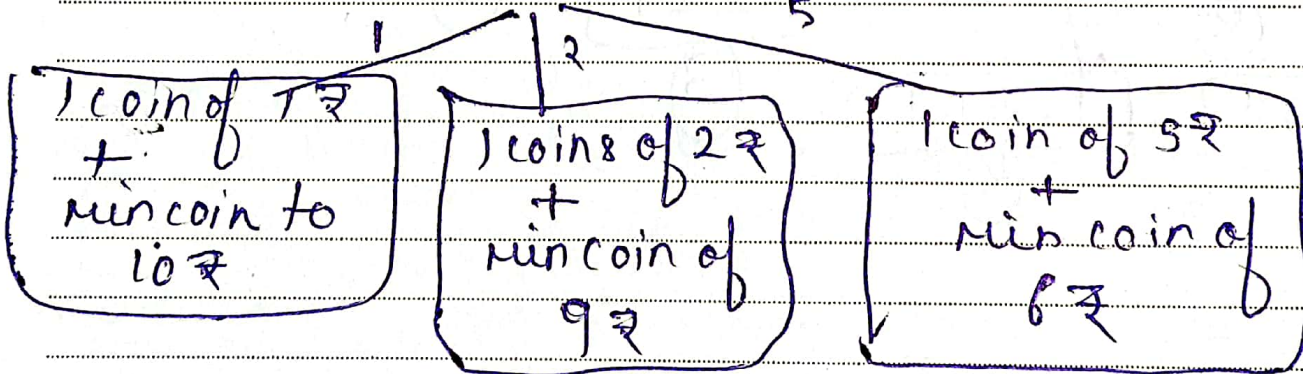 1
2
5
1 coin of 1₹
+
min coin to
10₹
1 coins of 2₹
+
min coin of
9₹
1 coin of 5₹
+
min coin of
6₹